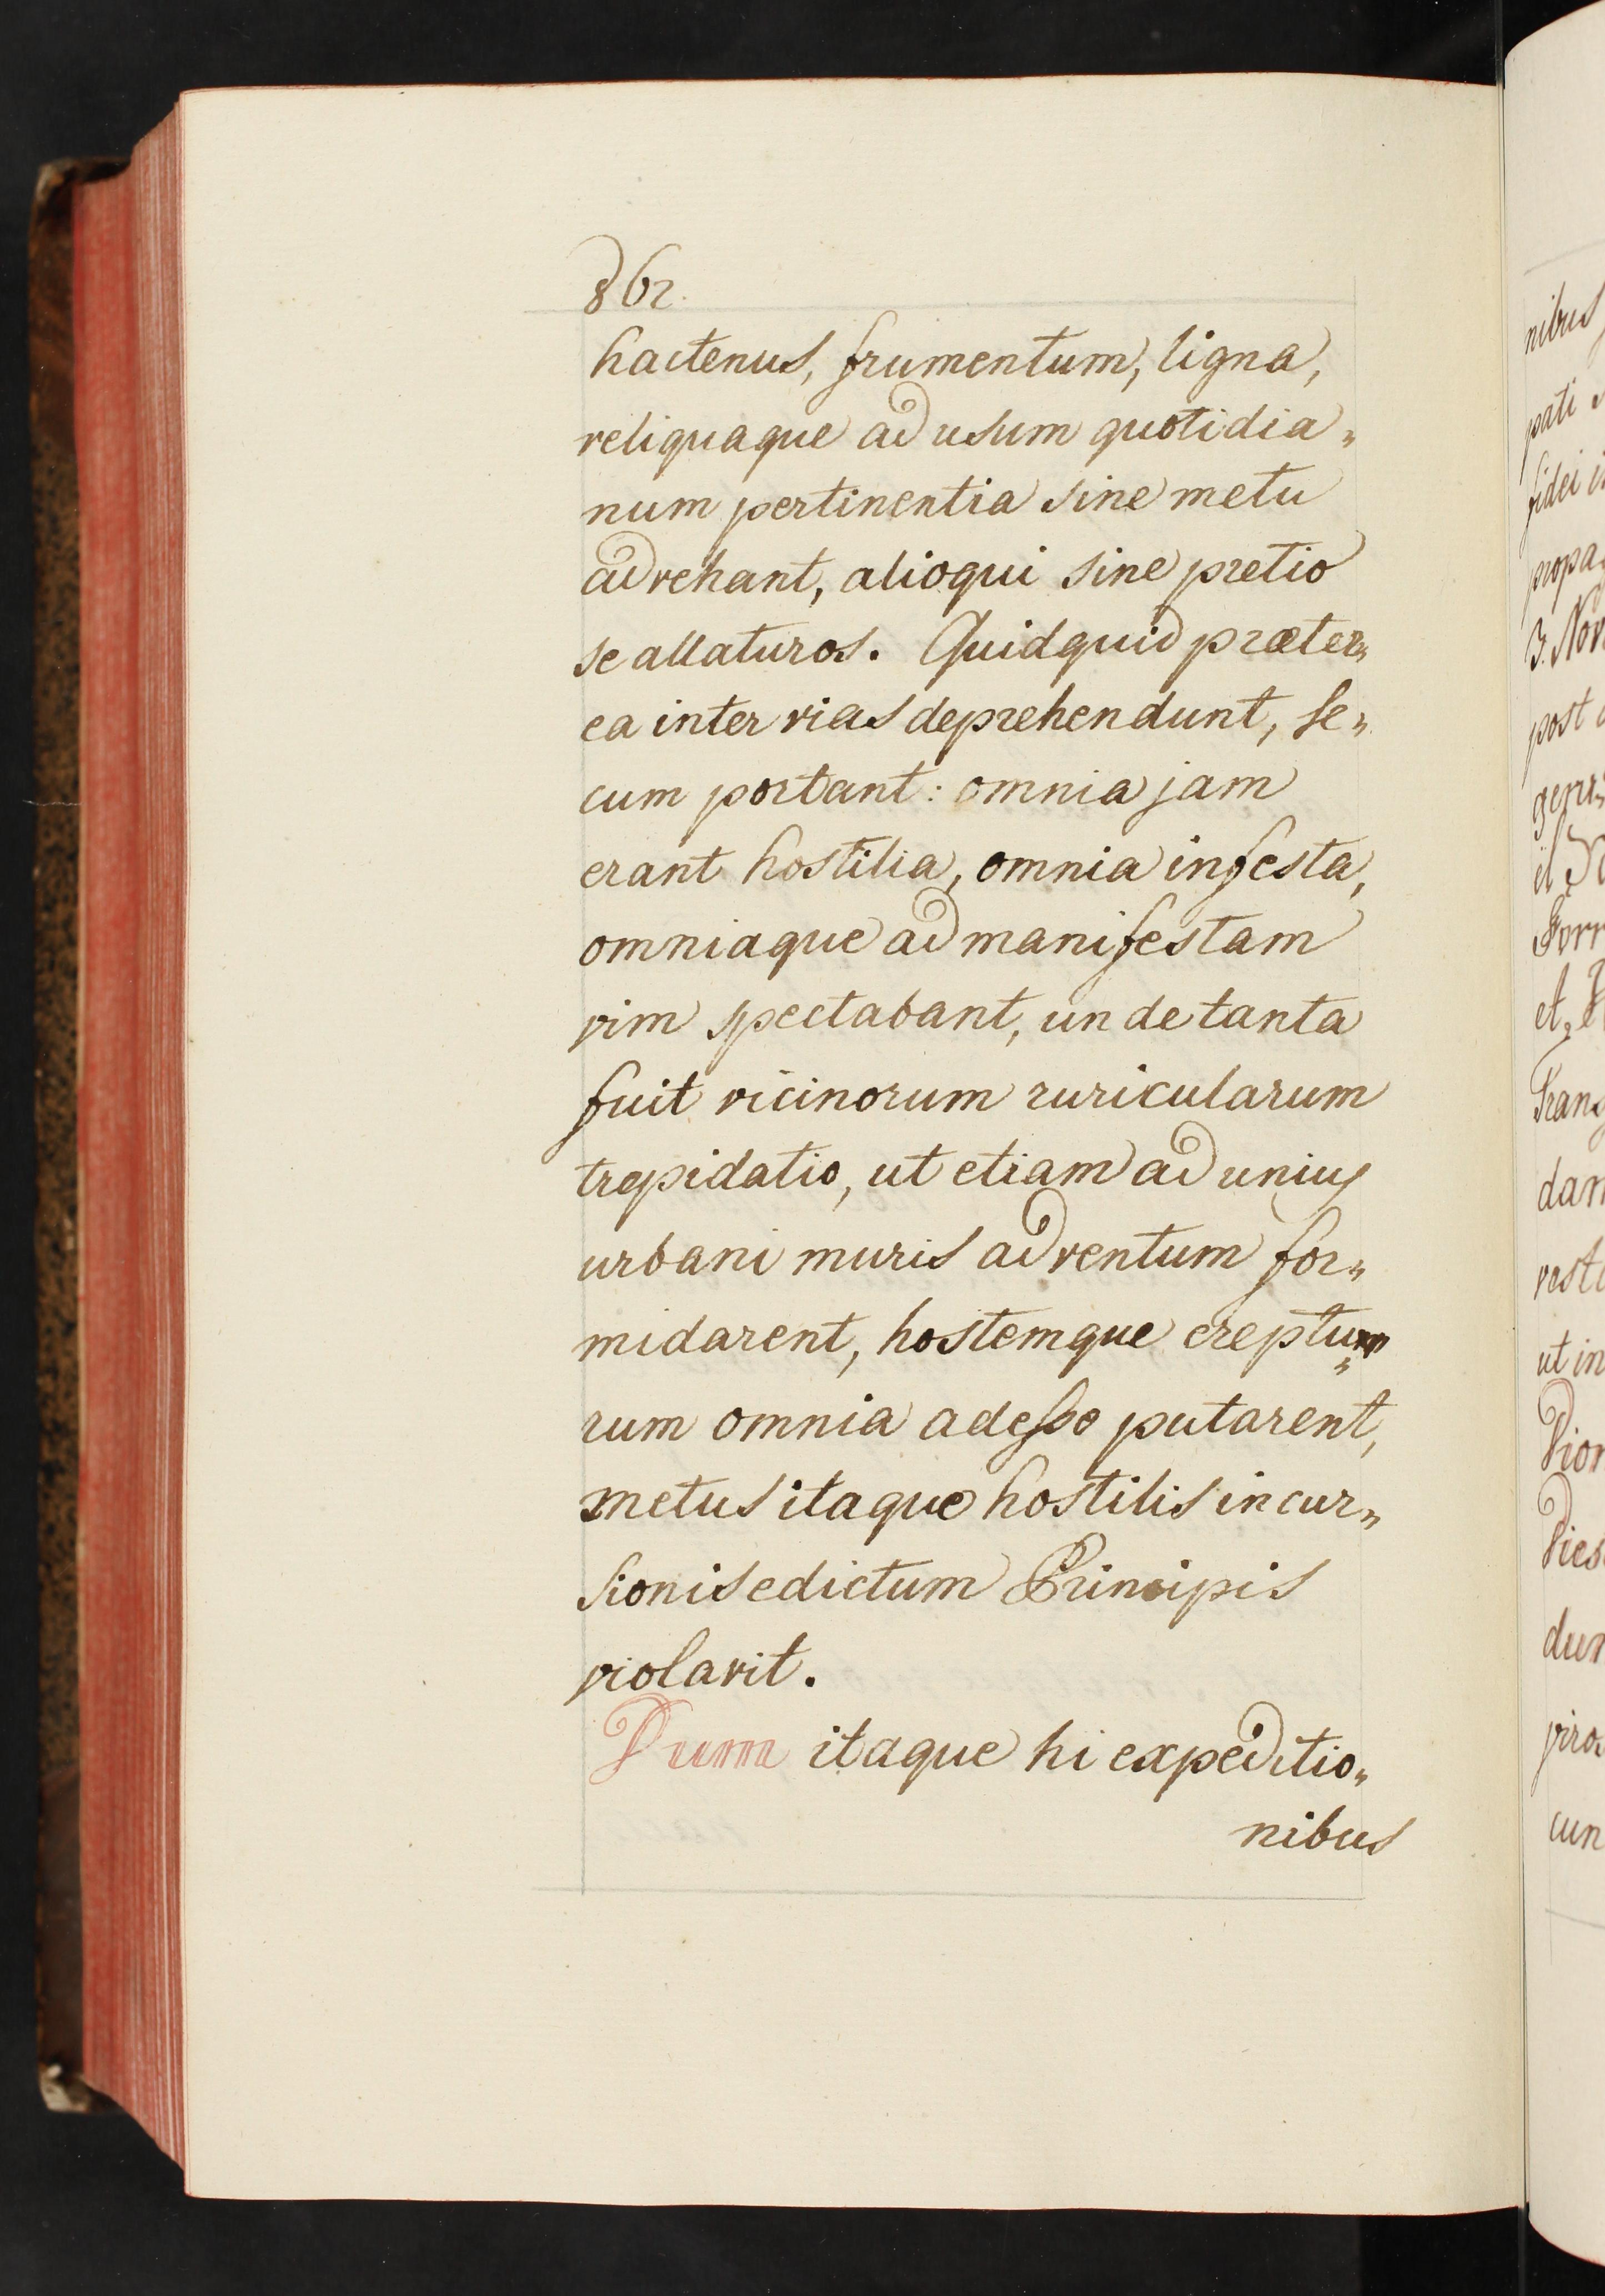 862.
hactenus, frumentum, ligna,
reliquaque ad usum quotidia„
num pertinentia sine metu
advehant, alioqui sine pretio
se allaturos. Quidquid præter„
ea inter vias deprehendunt, se„
cum portant: omnia jam
erant hostilia, omnia infesta,
omniaque ad manifestam
vim spectabant, unde tanta
fuit vicinorum ruricularum
trepidatio, ut etiam ad unius
urbani muris adventum for„
midarent, hostemque ereptu„
rum omnia adesse putarent,
metus itaque hostilis incur„
sionis edictum Principis
violavit.
Dum itaque hi expeditio„
nibus
nibus
pati
fidei
propa
3. Nov
post
et
et
dam
ut in
cun